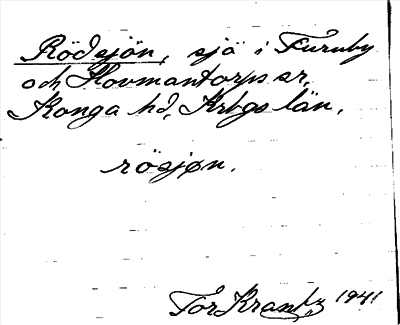 Rödsjön, sjö i Furuby
och Hovmantorps sr,
Konga hd, Krbgs län.
røsjøn.
Tor Kranby 1941